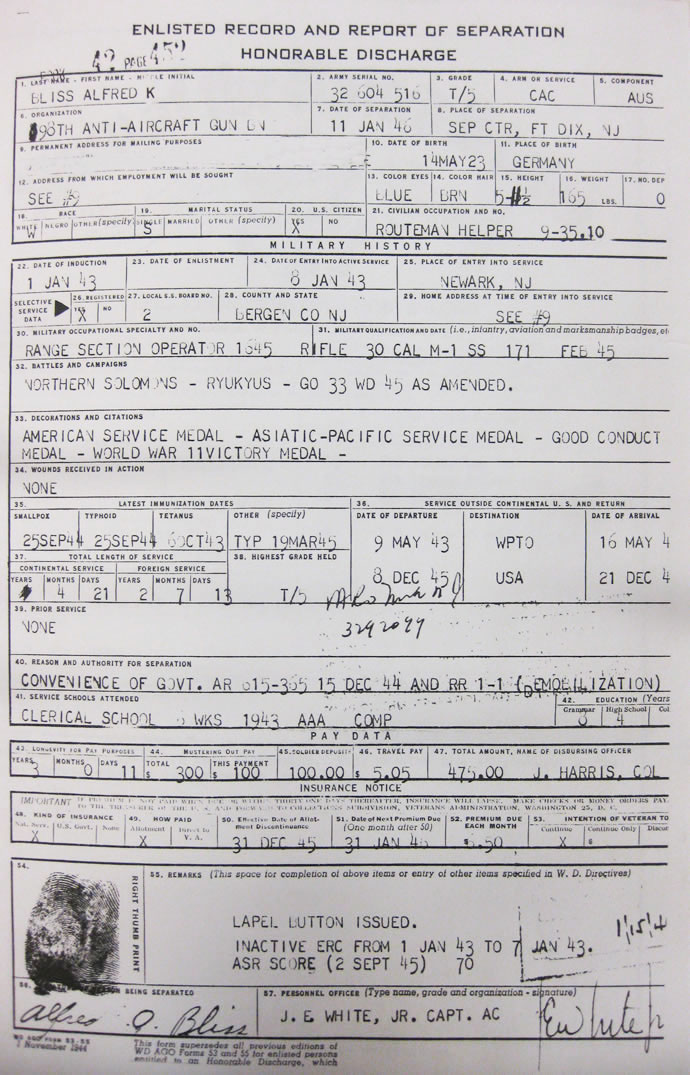 ENLISTED RECORD AND REPORT OF SEPARATION
HONORABLE DISCHARGE
42 PAGE 452
1. LAST NAME - FIRST NAME - MIDDLE INITIAL
2. ARMY SERIAL NO.
3. GRADE
4. ARM OR SERVICE
5. COMPONENT
BLISS ALFRED K
32 604 516
T/5
CAC
AUS
6. ORGANIZATION
7. DATE OF SEPARATION
8. PLACE OF SEPARATION
98TH ANTI-AIRCRAFT GUN BN
11 JAN 46
SEP CTR, FT DIX, NJ
9. PERMANENT ADDRESS FOR MAILING PURPOSES
10. DATE OF BIRTH
11. PLACE OF BIRTH
14MAY23
GERMANY
12. ADDRESS FROM WHICH EMPLOYMENT WILL BE SOUGHT
13. COLOR EYES
14. COLOR HAIR
15. HEIGHT
16. WEIGHT
17. NO. DEP
SEE #9
BLUE
BRN
165 LBS.
0
18. RACE
19. MARITAL STATUS
20. U.S. CITIZEN
21. CIVILIAN OCCUPATION AND NO.
WHITE NEGRO OTHER (specify) SINGLE MARRIED OTHER (specify) YES NO
W
S
X
ROUTEMAN HELPER 9-35.10
MILITARY HISTORY
22. DATE OF INDUCTION
23. DATE OF ENLISTMENT
24. DATE OF ENTRY INTO ACTIVE SERVICE
25. PLACE OF ENTRY INTO SERVICE
1 JAN 43
8 JAN 43
NEWARK, NJ
SELECTIVE SERVICE DATA
26. REGISTERED
YES NO
27. LOCAL S.S. BOARD NO.
28. COUNTY AND STATE
29. HOME ADDRESS AT TIME OF ENTRY INTO SERVICE
X
2
BERGEN CO NJ
SEE #9
30. MILITARY OCCUPATIONAL SPECIALTY AND NO.
31. MILITARY QUALIFICATION AND DATE (i.e., infantry, aviation and marksmanship badges, etc
RANGE SECTION OPERATOR 1645
RIFLE 30 CAL M-1 SS 171 FEB 45
32. BATTLES AND CAMPAIGNS
NORTHERN SOLOMONS - RYUKYUS - GO 33 WD 45 AS AMENDED.
33. DECORATIONS AND CITATIONS
AMERICAN SERVICE MEDAL - ASIATIC-PACIFIC SERVICE MEDAL - GOOD CONDUCT
MEDAL - WORLD WAR 11VICTORY MEDAL -
34. WOUNDS RECEIVED IN ACTION
NONE
35. LATEST IMMUNIZATION DATES
36. SERVICE OUTSIDE CONTINENTAL U. S. AND RETURN
SMALLPOX
TYPHOID
TETANUS
OTHER (specify)
DATE OF DEPARTURE
DESTINATION
DATE OF ARRIVAL
25SEP44
25SEP44
6OCT43
TYP 19MAR45
9 MAY 43
WPTO
16 MAY 4
37. TOTAL LENGTH OF SERVICE
38. HIGHEST GRADE HELD
CONTINENTAL SERVICE
FOREIGN SERVICE
8 DEC 45
USA
21 DEC 4
YEARS MONTHS DAYS YEARS MONTHS DAYS
4 21 2 7 13
T/5
39. PRIOR SERVICE
NONE
3292099
40. REASON AND AUTHORITY FOR SEPARATION
CONVENIENCE OF GOVT. AR 615-365 15 DEC 44 AND RR 1-1 (DEMOBILIZATION)
41. SERVICE SCHOOLS ATTENDED
42. EDUCATION (Years
Grammar High School Col
CLERICAL SCHOOL 6 WKS 1943 AAA COMP
8 4
PAY DATA
43. LONGEVITY FOR PAY PURPOSES
44. MUSTERING OUT PAY
45. SOLDIER DEPOSITS
46. TRAVEL PAY
47. TOTAL AMOUNT, NAME OF DISBURSING OFFICER
YEARS MONTHS DAYS TOTAL THIS PAYMENT
3 0 11 $ 300 $ 100
100.00
$ 5.05
475.00 J. HARRIS, COL
INSURANCE NOTICE
IMPORTANT IF PREMIUM IS NOT PAID WHEN DUE OR WITHIN THIRTY-ONE DAYS THEREAFTER, INSURANCE WILL LAPSE. MAKE CHECKS OR MONEY ORDERS PAY.
TO THE TREASURER OF THE U. S. AND FORWARD TO COLLECTIONS SUBDIVISION, VETERANS ADMINISTRATION, WASHINGTON 25, D. C.
48. KIND OF INSURANCE
49. HOW PAID
50. Effective Date of Allotment Discontinuance
51. Date of Next Premium Due (One month after 50)
52. PREMIUM DUE EACH MONTH
53. INTENTION OF VETERAN TO
Nat. Serv. U.S. Govt. None
Allotment Direct to V. A.
Continue Continue Only Discon
X
X
31 DEC 45
31 JAN 46
.50
X $
54.
RIGHT THUMB PRINT
55. REMARKS (This space for completion of above items or entry of other items specified in W. D. Directives)
LAPEL BUTTON ISSUED.
INACTIVE ERC FROM 1 JAN 43 TO 7 JAN 43.
ASR SCORE (2 SEPT 45) 70
1/15/4
56. SIGNATURE OF PERSON BEING SEPARATED
57. PERSONNEL OFFICER (Type name, grade and organization - signature)
Alfred Bliss
J. E WHITE, JR. CAPT. AC
JE White Jr
WD AGO FORM 53-55
1 November 1944
This form supersedes all previous editions of
WD AGO Forms 53 and 55 for enlisted persons
entitled to an Honorable Discharge, which